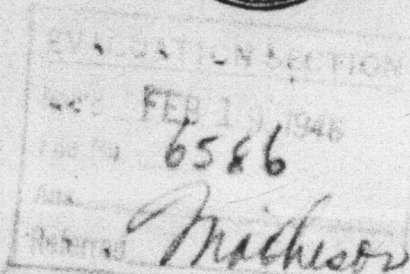 EVALUATION SECTION
Rec'd FEB 19 1946
File No. 6586
Ans.
Referred Matheson